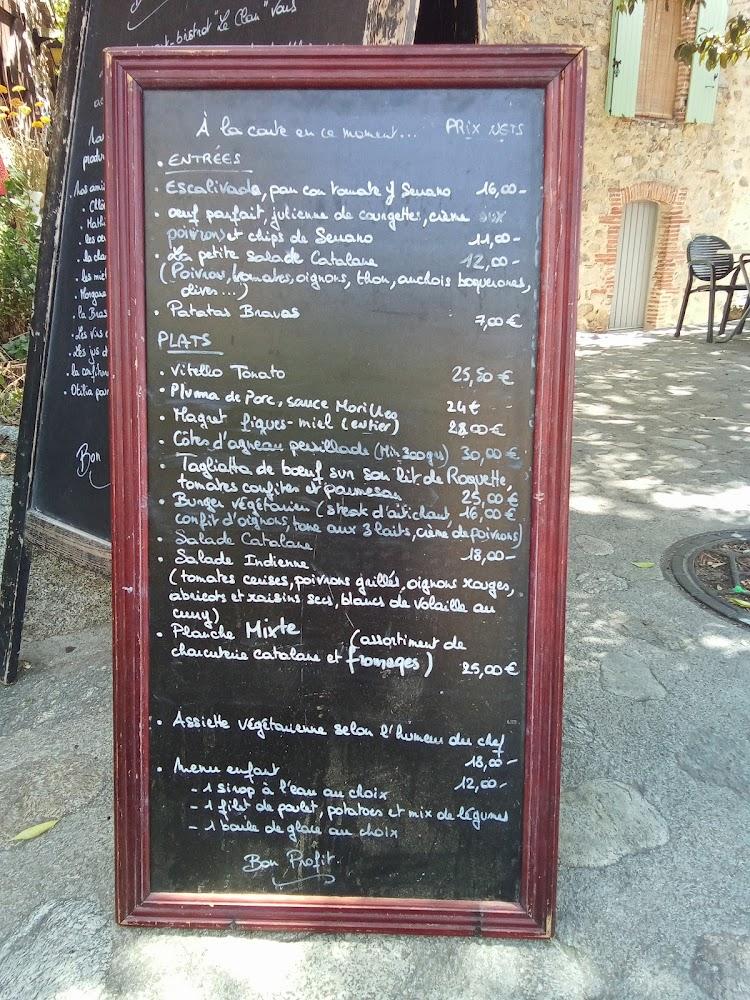 bistrot "Le Clan" vous
À la carte en ce moment... PRIX NETS
. ENTRÉES
. Escalivada, pan con tomate y Serrano 16,00-
. oeuf parfait, julienne de courgettes, crème aux
poivrons et chips de Serrano 11,00-
. La petite salade Catalane 12,00-
(Poivrons, tomates, oignons, thon, anchois boquerones,
olives...)
. Patatas Bravas 7,00€
PLATS
. Vitello Tonato 25,50€
. Pluma de Porc, sauce Morilles 24€
. Magret figues-miel (entier) 28,00€
. Côtes d'agneau persillade (Min 300gr) 30,00€
. Tagliatta de boeuf sur son lit de Roquette,
tomates confites et parmesan 25,00€
. Burger végétarien (steak d'artichaut 16,00€
confit d'oignons, tome aux 3 laits, crème de poivrons)
. Salade Catalane 18,00-
. Salade Indienne
(tomates cerises, poivrons grillés, oignons rouges,
abricots et raisins secs, blancs de volaille au
curry)
. Planche Mixte (assortiment de
charcuterie catalane et fromages) 25,00€
. Assiette végétarienne selon l'humeur du chef
18,00-
. Menu enfant 12,00-
- 1 sirop à l'eau au choix
- 1 filet de poulet, potatoes et mix de légumes
- 1 boule de glace au choix
Bon Profit.
Bon